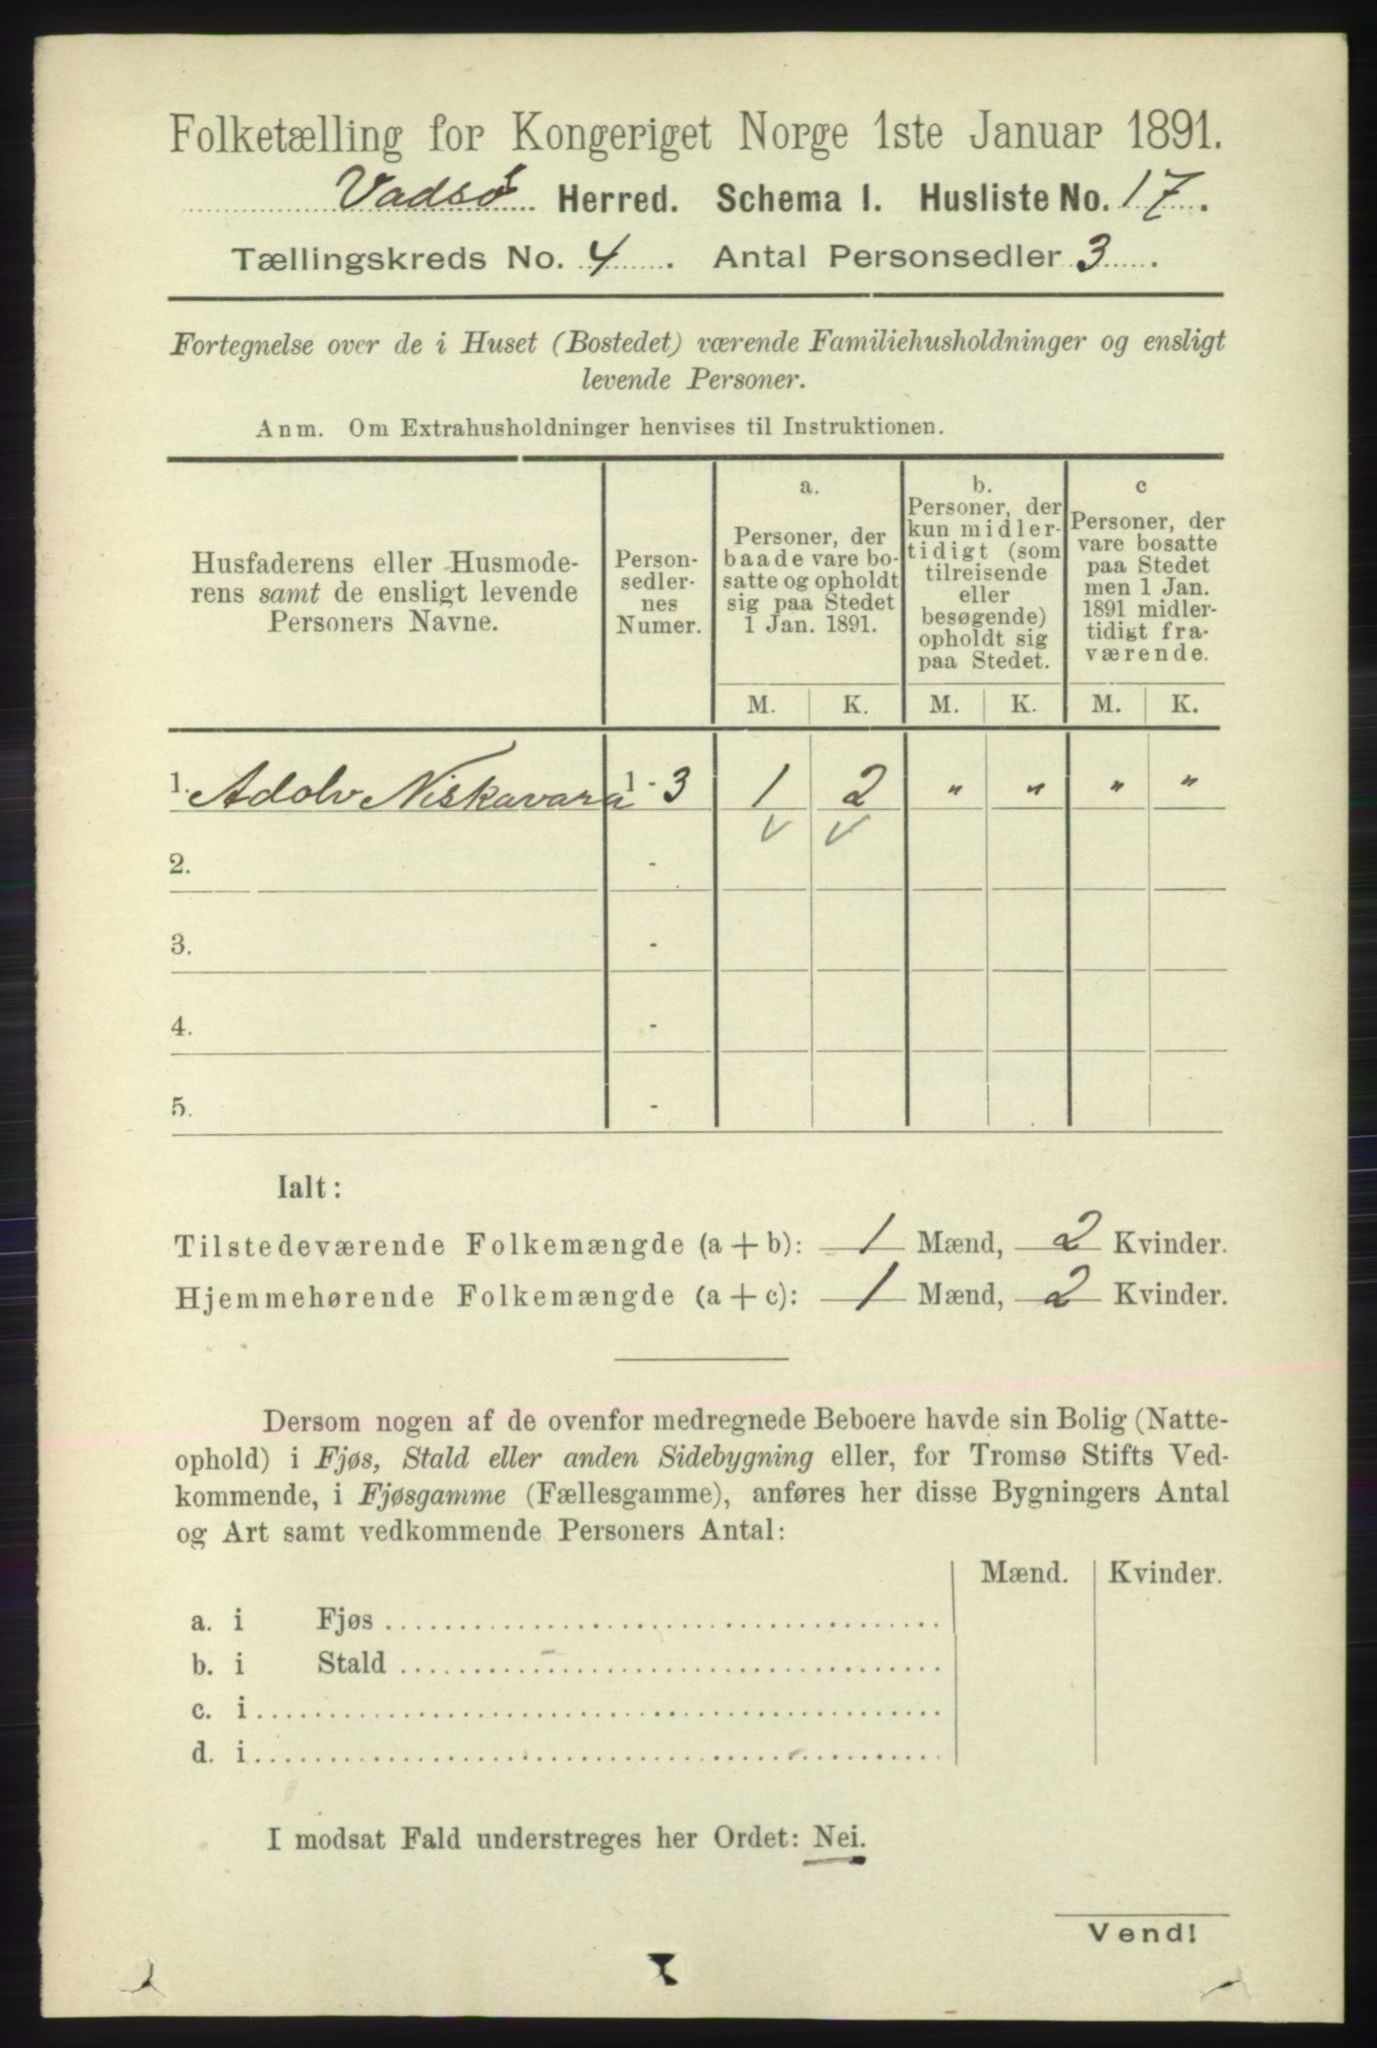 Folketælling for Kongeriget Norge 1ste Januar 1891.
Vadsø Herred. Schema I. Husliste No. 17.
Tællingskreds No. 4. Antal Personsedler 3.
Fortegnelse over de i Huset (Bostedet) værende Familiehusholdninger og ensligt
levende Personer.
Anm. Om Extrahusholdninger henvises til Instruktionen.
Husfaderens eller Husmode-
rens samt de ensligt levende
Personers Navne.
Person-
sedler-
nes
Numer.
a.
Personer, der
baade vare bo-
satte og opholdt
sig paa Stedet
1 Jan. 1891.
b.
Personer, der
kun midler-
tidigt (som
tilreisende
eller
besøgende)
opholdt sig
paa Stedet.
c
Personer, der
vare bosatte
paa Stedet
men 1 Jan.
1891 midler-
tidigt fra-
værende.
M. K. M. K. M. K.
1. Adolv Niskavara 1 - 3 1 2 " " " "
2. -
3. -
4. -
5. -
Ialt:
Tilstedeværende Folkemængde (a + b): 1 Mænd, 2 Kvinder.
Hjemmehørende Folkemængde (a + c): 1 Mænd, 2 Kvinder.
Dersom nogen af de ovenfor medregnede Beboere havde sin Bolig (Natte-
ophold) i Fjøs, Stald eller anden Sidebygning eller, for Tromsø Stifts Ved-
kommende, i Fjøsgamme (Fællesgamme), anføres her disse Bygningers Antal
og Art samt vedkommende Personers Antal:
Mænd. Kvinder.
a. i Fjøs
b. i Stald
c. i
d. i
I modsat Fald understreges her Ordet: Nei.
Vend!